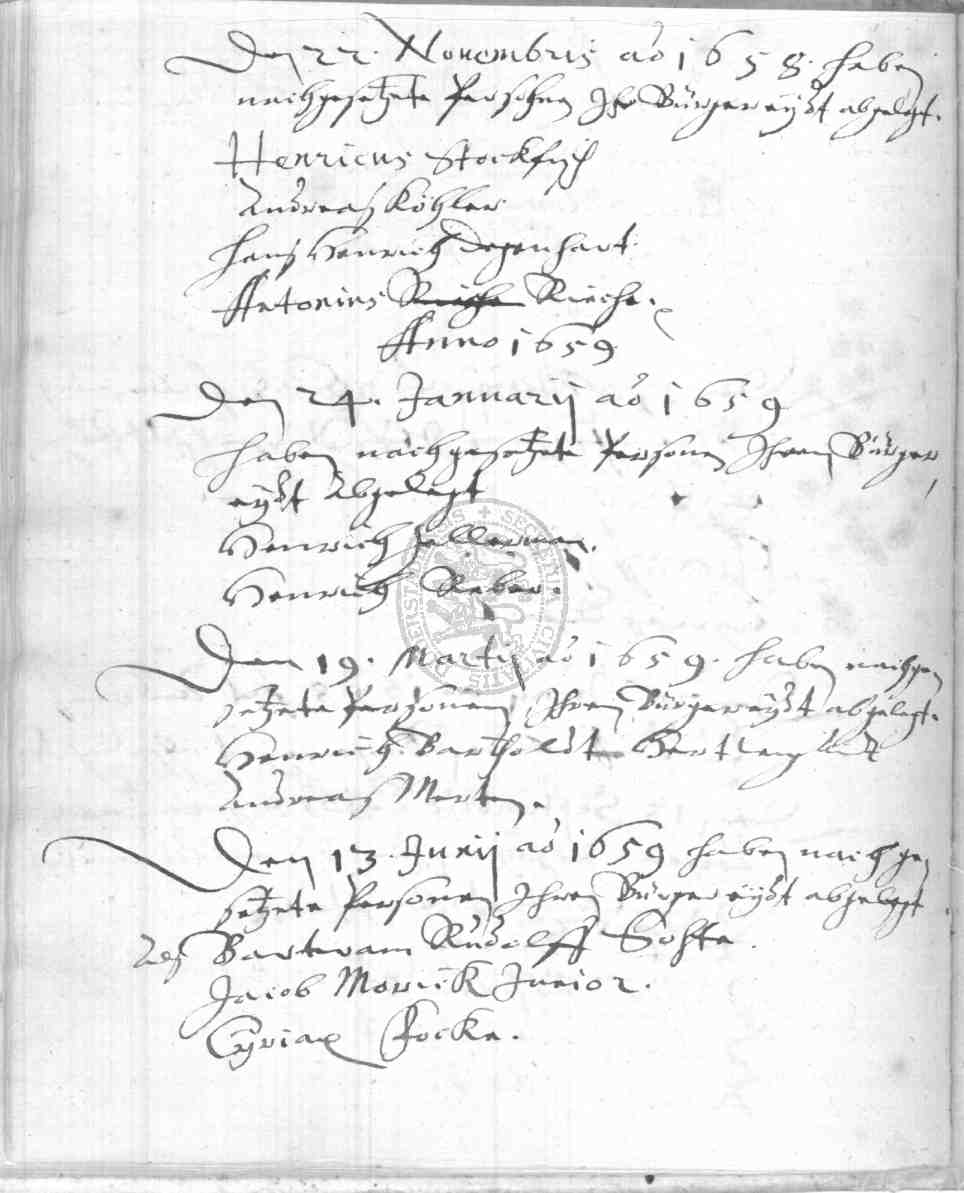 Den 22. Novembris aõ 1658. haben
nachgesetzete Persohnen Ihr Bürgereydt abgelegt.
Henricus Stockfisch
Andreas Köhler
Hans Henrich Degenhart
Antonius Rieche.
Anno 1659
Den 24. Januarij aõ 1659
haben nachgesetzete Personen Ihren Bürger
eydt abgelegt
Henrich Hellerman.
Henrich Reber.
Den 19. Martij aõ 1659. haben nachge
setzete Personen Ihren Bürgereydt abgelegt.
Henrich Bartholdt
Andreas Merten.
Den 13. Junij aõ 1659 haben nachge
setzete Personen Ihren Bürgereydt abgelegt
Als Bartram Rudolff Sohte.
Jacob Morick Junior.
Cyriax Focke.
SECRETA CIVITATIS